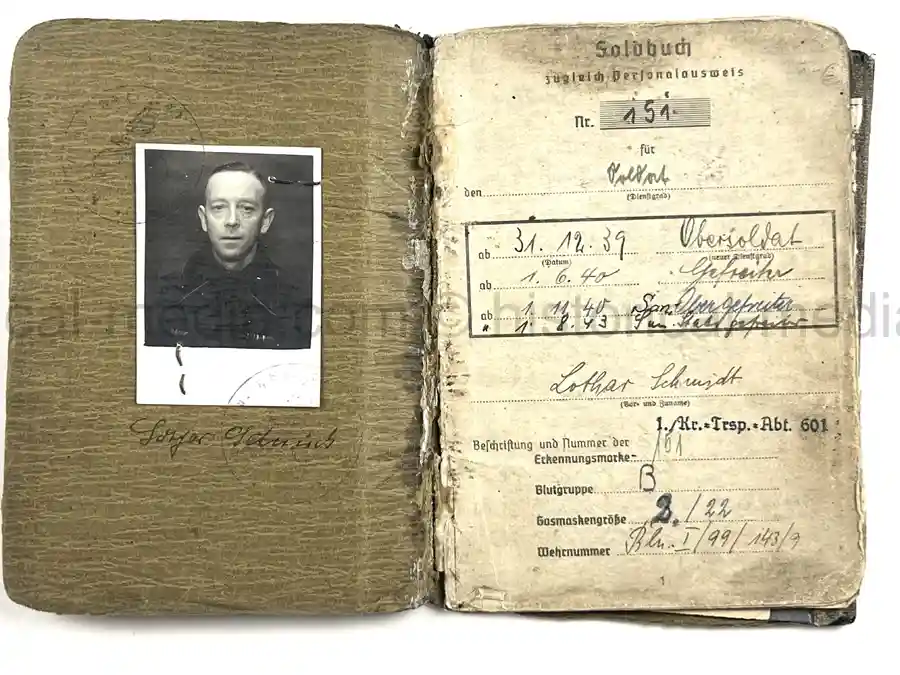 Lothar Schmidt
Soldbuch
zugleich Personalausweis
Nr. 191
für
den Soldat
(Dienstgrad)
ab 31. 12. 39 Obersoldat
(Datum) (neuer Dienstgrad)
ab 1. 6. 40 Gefreiter
ab 1. 11. 40 San. Obergefreiter
" 1. 8. 43 San. Stabsgefreiter
Lothar Schmidt
(Vor- und Zuname)
1./Kr.=Trsp.=Abt. 601
Beschriftung und Nummer der
Erkennungsmarke 191
Blutgruppe B
Gasmaskengröße 2. / 22
Wehrnummer Bln. I/99/143/9
1
historical media